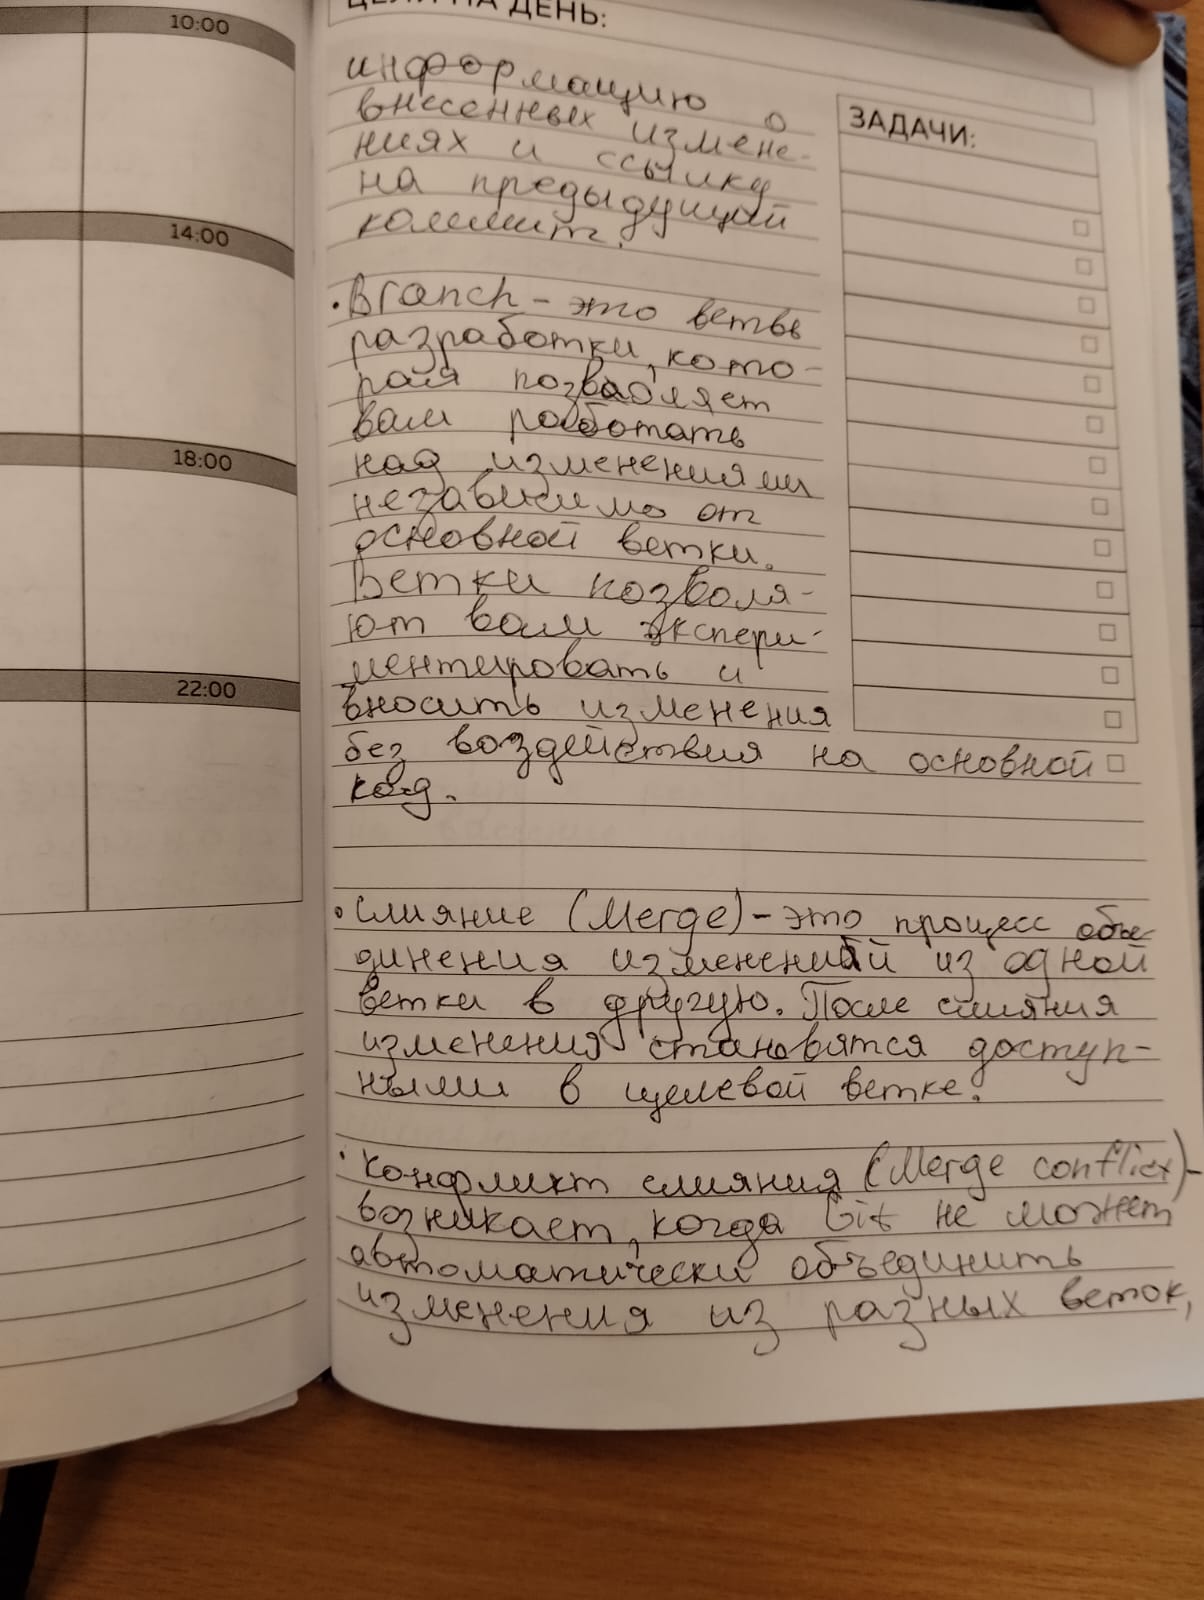 10:00
14:00
18:00
22:00
ЦЕЛИ НА ДЕНЬ:
ЗАДАЧИ:
информацию о
внесенных измене-
ниях и ссылку
на предыдущий
коммит.
• Branch - это ветвь
разработки, кото-
рая позволяет
вам работать
над изменениями
независимо от
основной ветки.
Ветки позволя-
ют вам экспери-
ментировать и
вносить изменения
без воздействия на основной
код.
• Слияние (Merge) - это процесс объе-
динения изменений из одной
ветки в другую. После слияния
изменения становятся доступ-
ными в целевой ветке.
• Конфликт слияния (Merge conflict) -
возникает, когда Git не может
автоматически объединить
изменения из разных веток,